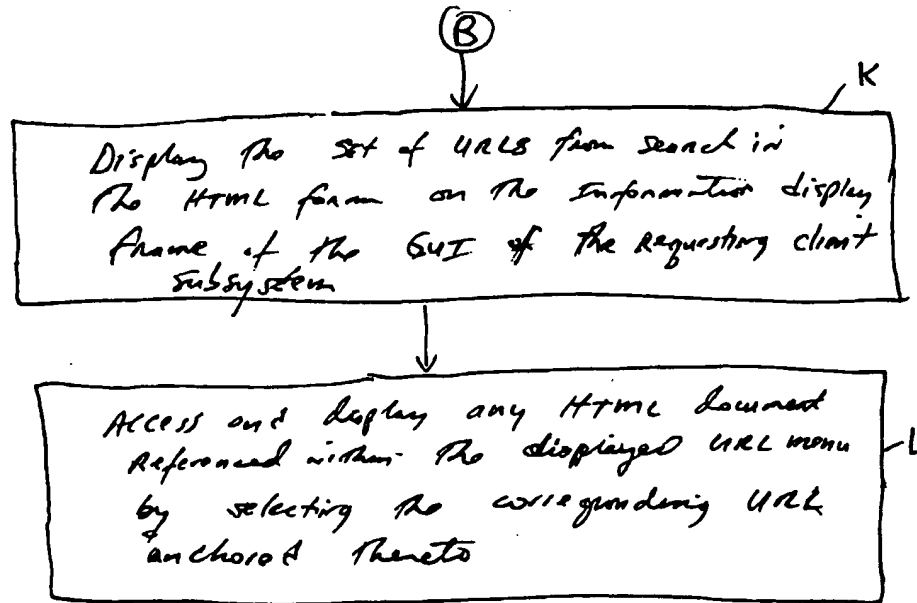 B
K
Display the set of URLs from search in
the HTML form on the Information display
frame of the GUI of the Requesting client
subsystem
Access and display any HTML document
Referenced within the displayed URL menu
by selecting the corresponding URL
anchored thereto
L